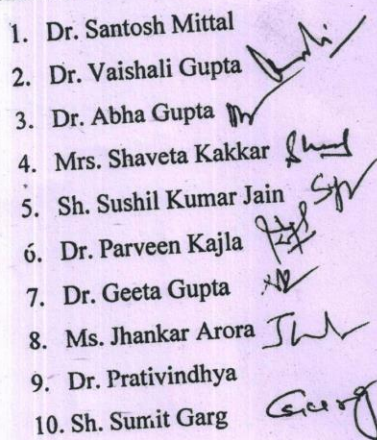 1. Dr. Santosh Mittal
2. Dr. Vaishali Gupta
3. Dr. Abha Gupta
4. Mrs. Shaveta Kakkar
5. Sh. Sushil Kumar Jain
6. Dr. Parveen Kajla
7. Dr. Geeta Gupta
8. Ms. Jhankar Arora
9. Dr. Prativindhya
10. Sh. Sumit Garg